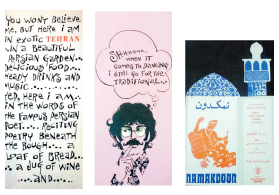 YOU WON'T BELIEVE
ME, BUT HERE I AM
IN EXOTIC TEHRAN
..IN A BEAUTIFUL
PERSIAN GARDEN..
DELICIOUS FOOD...
HEADY DRINKS AND
MUSIC...
HERE I AM..
IN THE WORDS OF
THE FAMOUS PERSIAN
POET.... RECITING
POETRY BENEATH
THE BOUGH.... A
LOAF OF BREAD...
..A JUG OF WINE
....AND....
SHHHH....
WHEN IT
COMES TO DANCING
I STILL GO FOR THE
TRADITIONAL...
نمکدون
NAMAKDOON